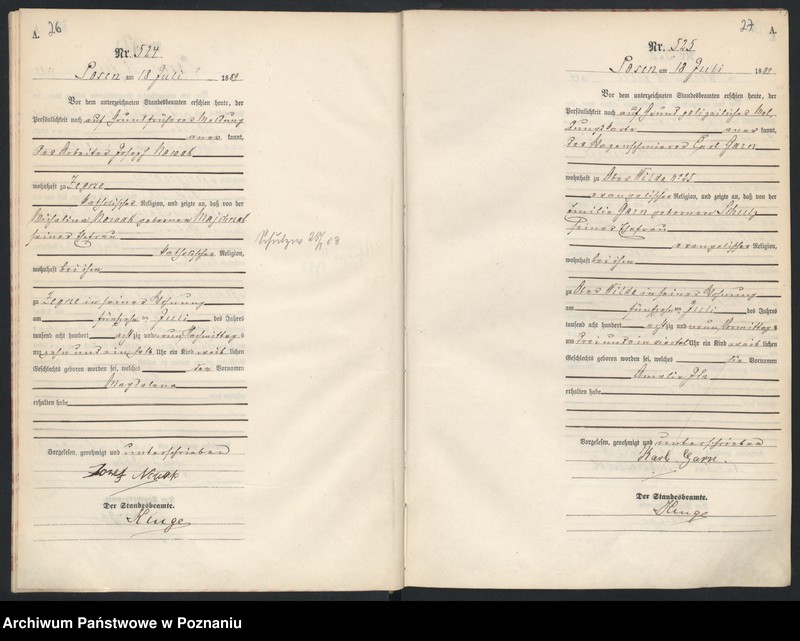 A. 26
Nr. 524
Posen am 18 Juli 1889
Vor dem unterzeichneten Standesbeamten erschien heute, der
Persönlichkeit nach auf Grund früherer Meldung
aner kannt,
der Arbeiter Josef Nowak
wohnhaft zu Zegrze
katholischer Religion, und zeigte an, daß von der
Michalina Nowak geborenen
seiner Ehefrau
katholischer Religion,
wohnhaft bei ihm
zu Zegrze in seiner Wohnung
am fünfzehnten Juli des Jahres
tausend acht hundert achtzig und neun Nachmittags
um zehn und ein halb Uhr ein Kind weiblichen
Geschlechts geboren worden sei, welches den Vornamen
Magdalena
erhalten habe
Vorgelesen, genehmigt und unterschrieben
Josef Nowak
Der Standesbeamte.
27 A.
Nr. 525
Posen am 18 Juli 1889
Vor dem unterzeichneten Standesbeamten erschien heute, der
Persönlichkeit nach auf Grund polizeilicher Mel-
dungskarte aner kannt,
der Wagenschmierer Carl Garn
wohnhaft zu Ober Wilda No 25
evangelischer Religion, und zeigte an, daß von der
Emilie Garn geborenen Schulz
seiner Ehefrau
evangelischer Religion,
wohnhaft bei ihm
zu Ober Wilda in seiner Wohnung
am fünfzehnten Juli des Jahres
tausend acht hundert achtzig und neun Vormittags
um drei und ein viertel Uhr ein Kind weiblichen
Geschlechts geboren worden sei, welches die Vornamen
Amalie Ida
erhalten habe
Vorgelesen, genehmigt und unterschrieben
Karl Garn.
Der Standesbeamte.
Archiwum Państwowe w Poznaniu